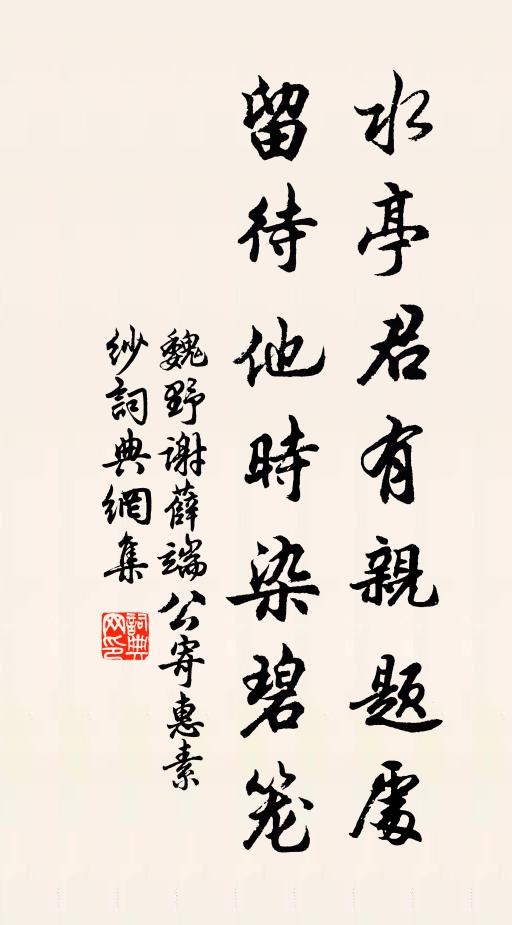 水亭君有親題處
留待他時染碧笼
魏野谢薛端公寄惠素
纱詞典網集
詞典网印